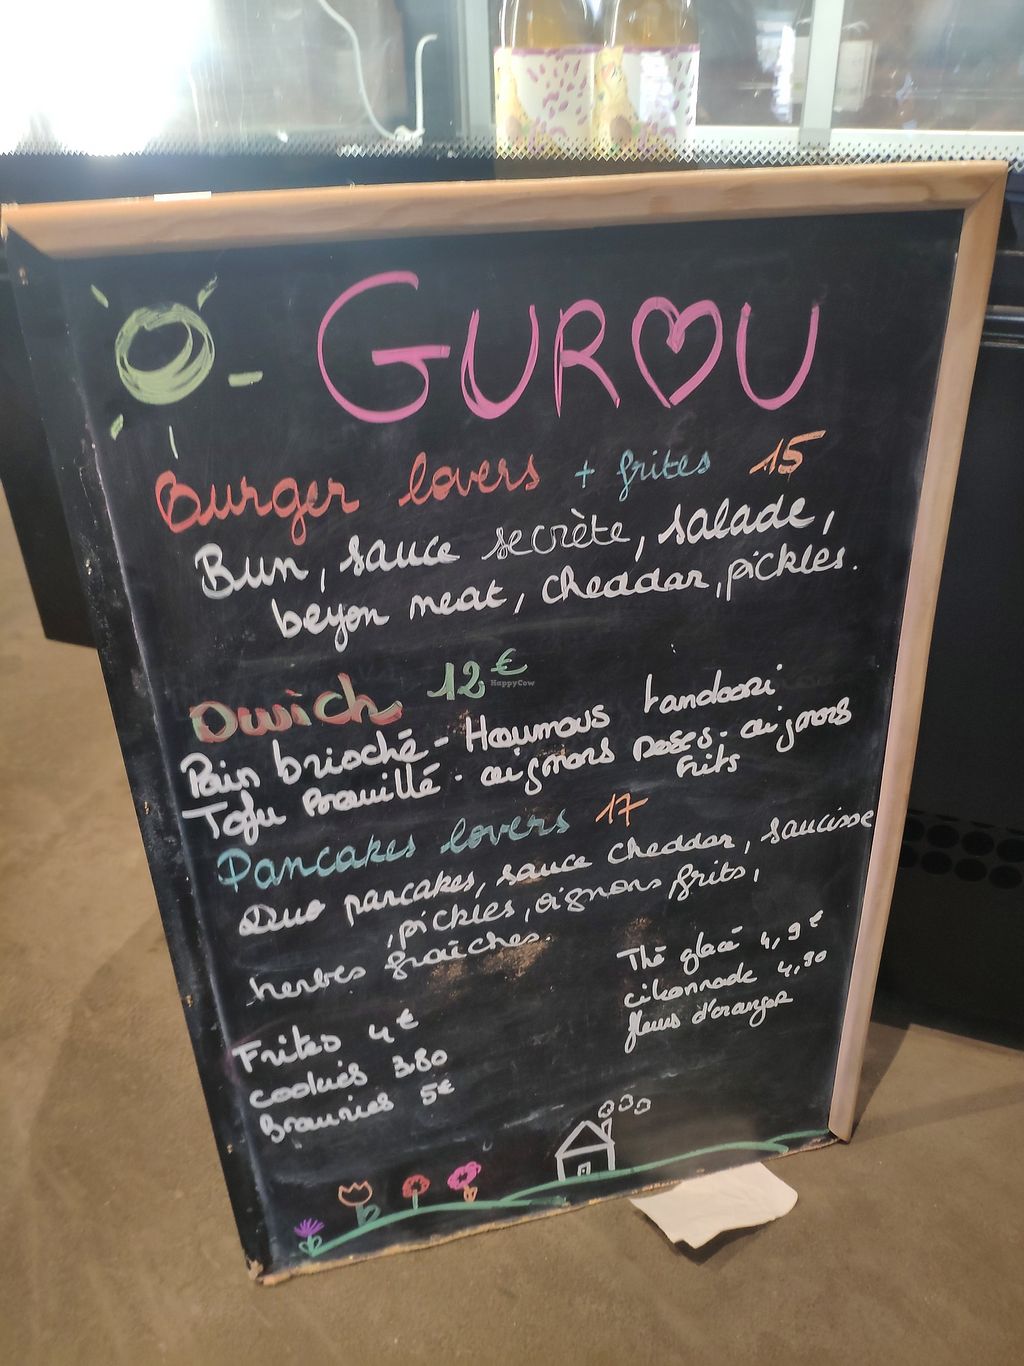 GUROU
Burger lovers + frites 15
Bun, sauce secrète, salade,
beyon meat, cheddar, pickles.
Dwich 12€
HappyCow
Pain brioché - Houmous tandoori
Tofu brouillé - oignons roses - oignons
frits
Pancakes lovers 17
Duo pancakes, sauce cheddar, saucisse
, pickles, oignons frits,
herbes fraîches.
Thé glacé 4,9€
citonnade 4,90
fleurs d'oranger
Frites 4€
cookies 3.80
Brownies 5€